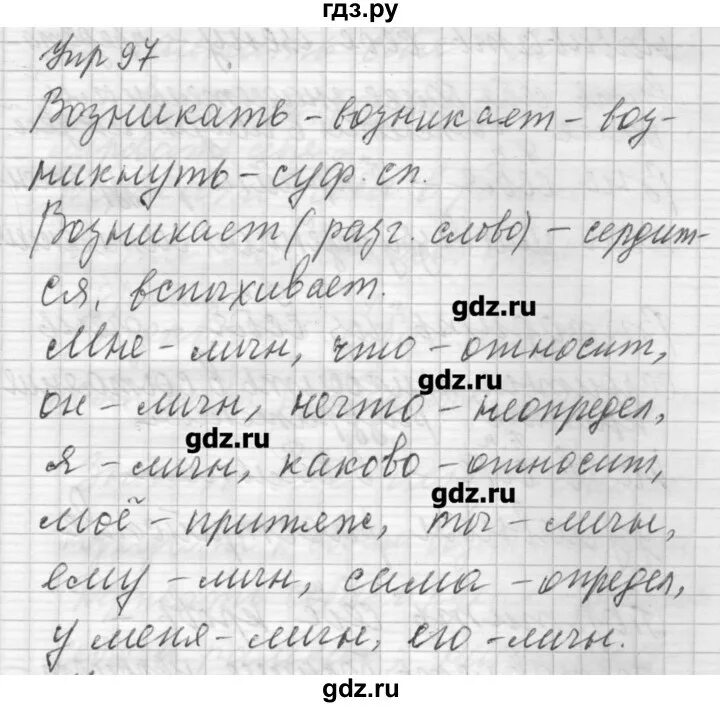 гдз.ру
Упр 97
Возникать – возникает – воз-
никнуть – суф. сп.
Возникает (разг. слово) – сердит-
ся, вспыхивает.
gdz.ru
Мне – личн, что – относит,
gdz.ru
он – личн, нечто – неопредел,
gdz.ru
я – личн, каково – относит,
gdz.ru
моё – притяж, ты – личн,
ему – личн, сама – определ,
у меня – личн, его – личн.
gdz.ru